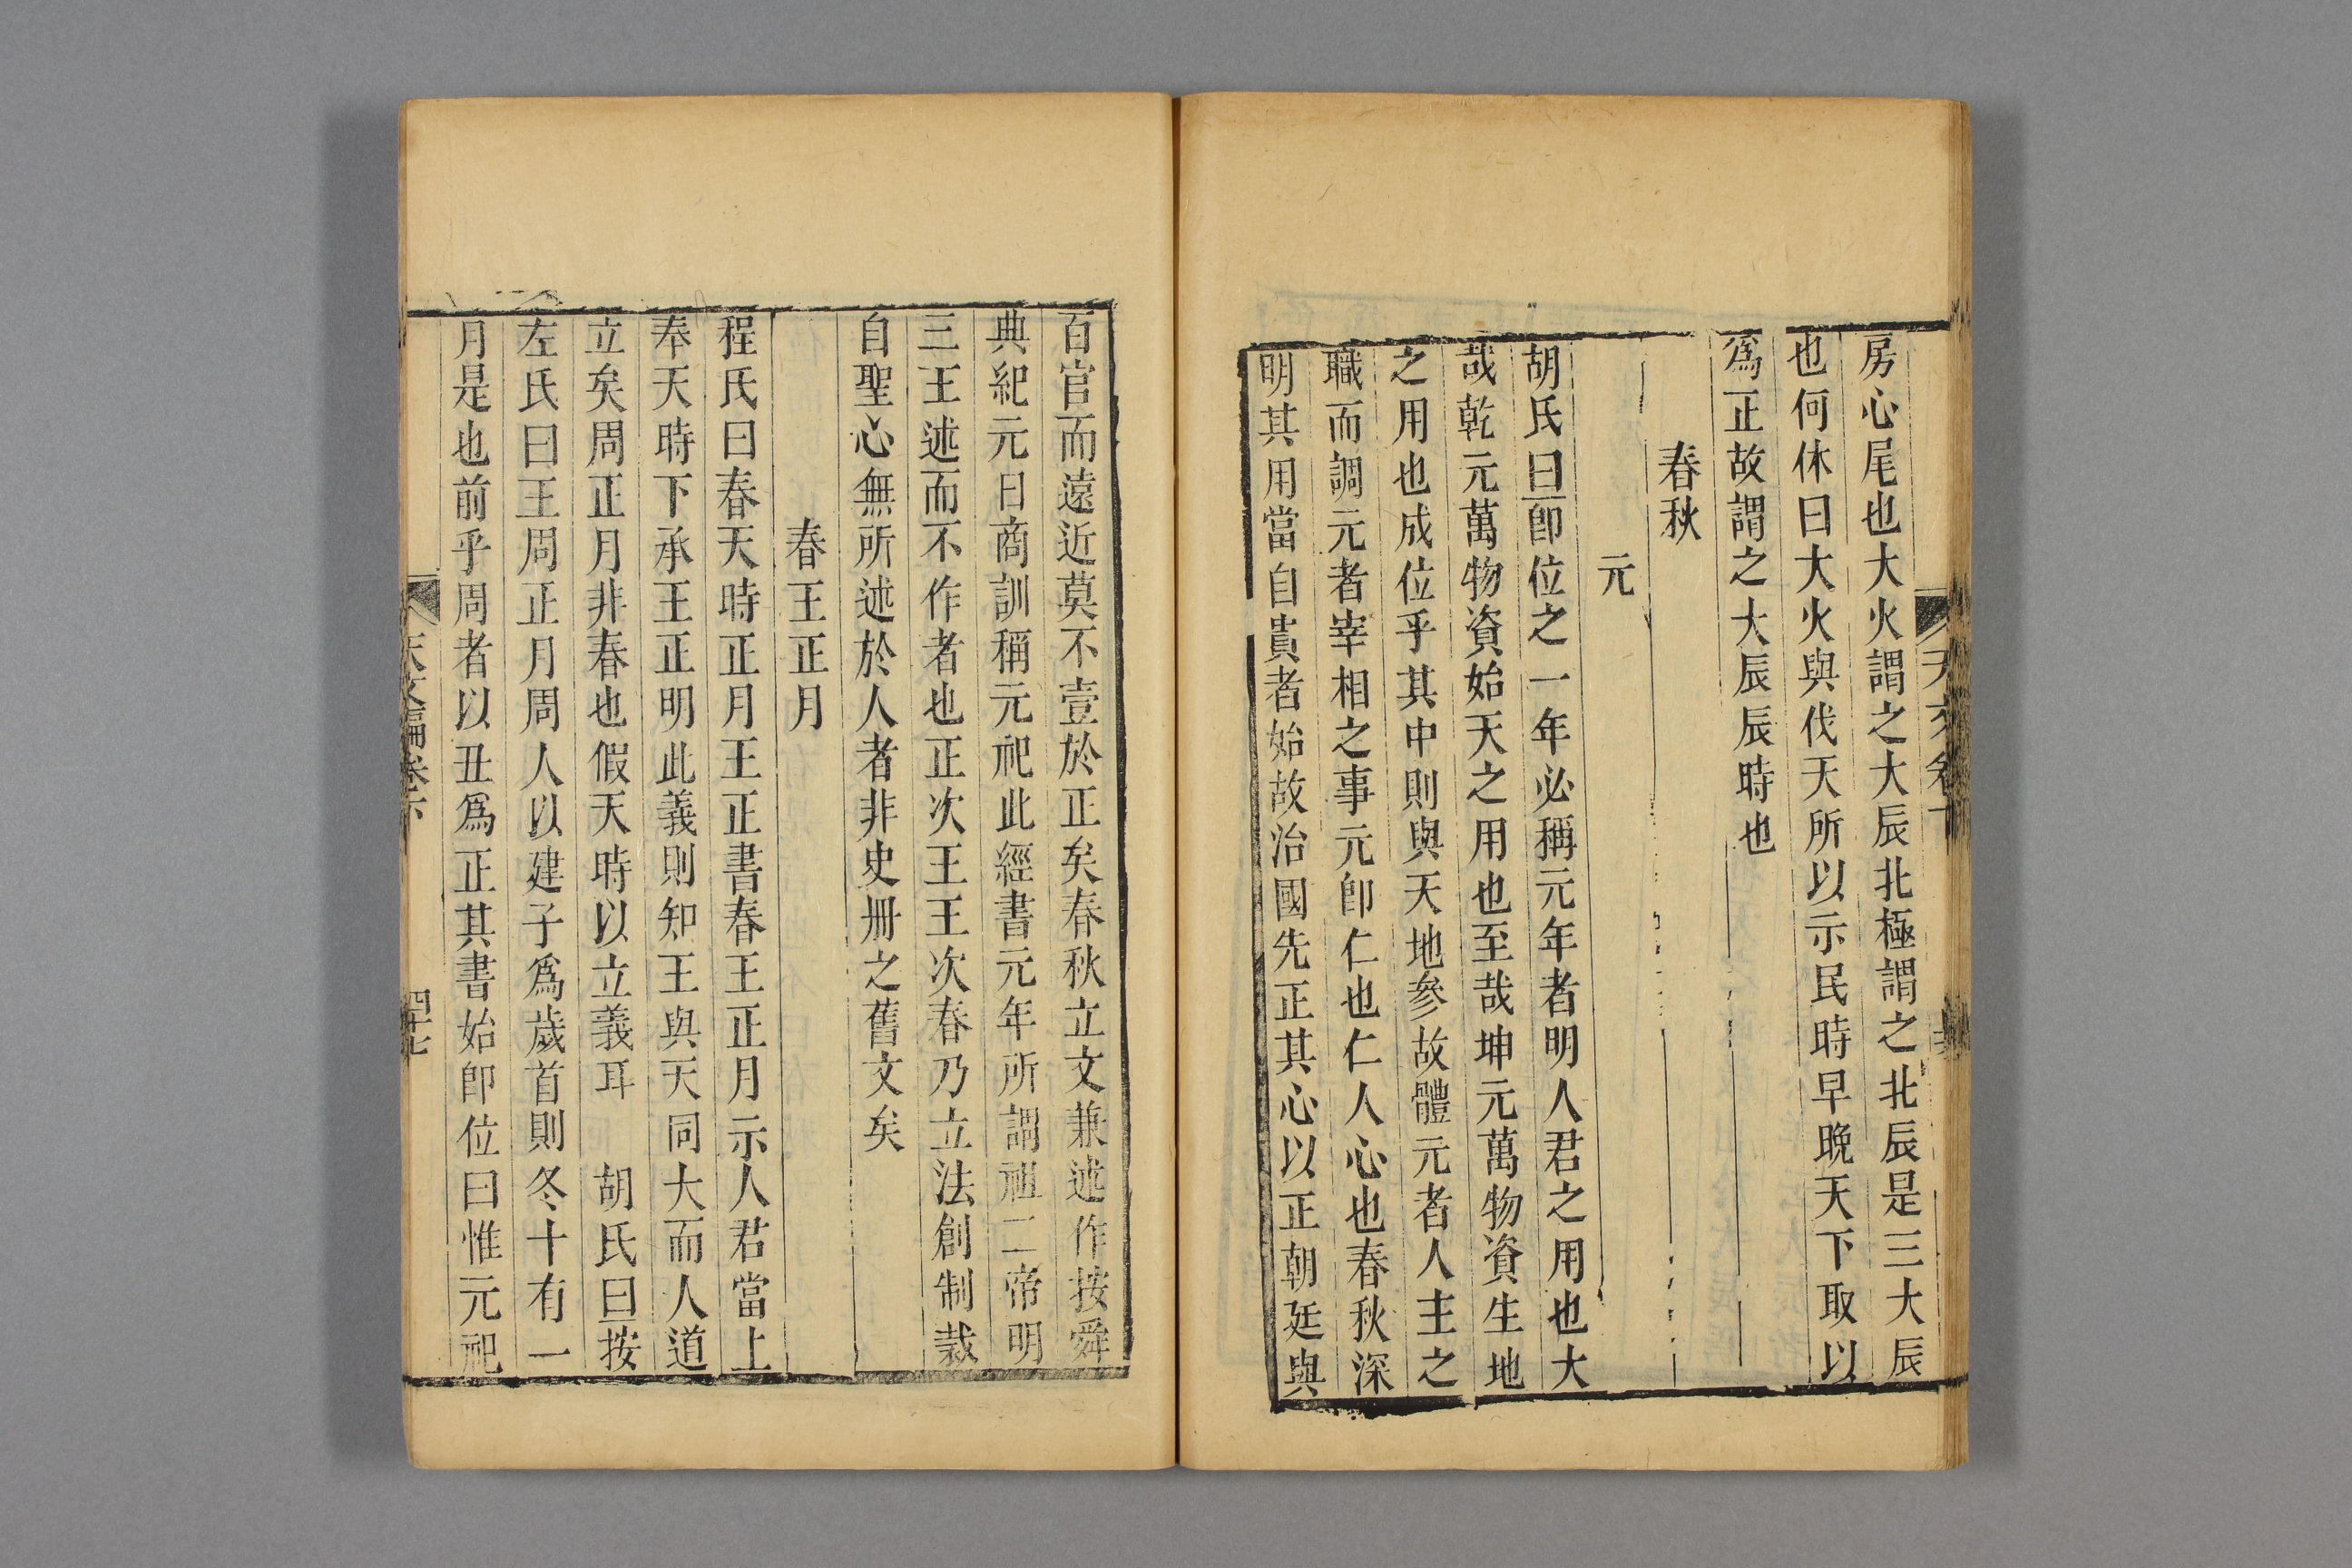 房心尾也大火謂之大辰北極謂之北辰是三大辰
也何休曰大火與伐天所以示民時早晚天下取以
爲正故謂之大辰辰時也
春秋
元
胡氏曰即位之一年必稱元年者明人君之用也大
哉乾元萬物資始天之用也至哉坤元萬物資生地
之用也成位乎其中則與天地參故體元者人主之
職而調元者宰相之事元即仁也仁人心也春秋深
明其用當自貴者始故治國先正其心以正朝廷與
百官而遠近莫不壹於正矣春秋立文兼述作按舜
典紀元日商訓稱元祀此經書元年所謂祖二帝明
三王述而不作者也正次王王次春乃立法創制裁
自聖心無所述於人者非史冊之舊文矣
春王正月
程氏曰春天時正月王正書春王正月示人君當上
奉天時下承王正明此義則知王與天同大而人道
立矣周正月非春也假天時以立義耳 胡氏曰按
左氏曰王周正月周人以建子爲歲首則冬十有一
月是也前乎周者以丑爲正其書始即位曰惟元祀
四十七